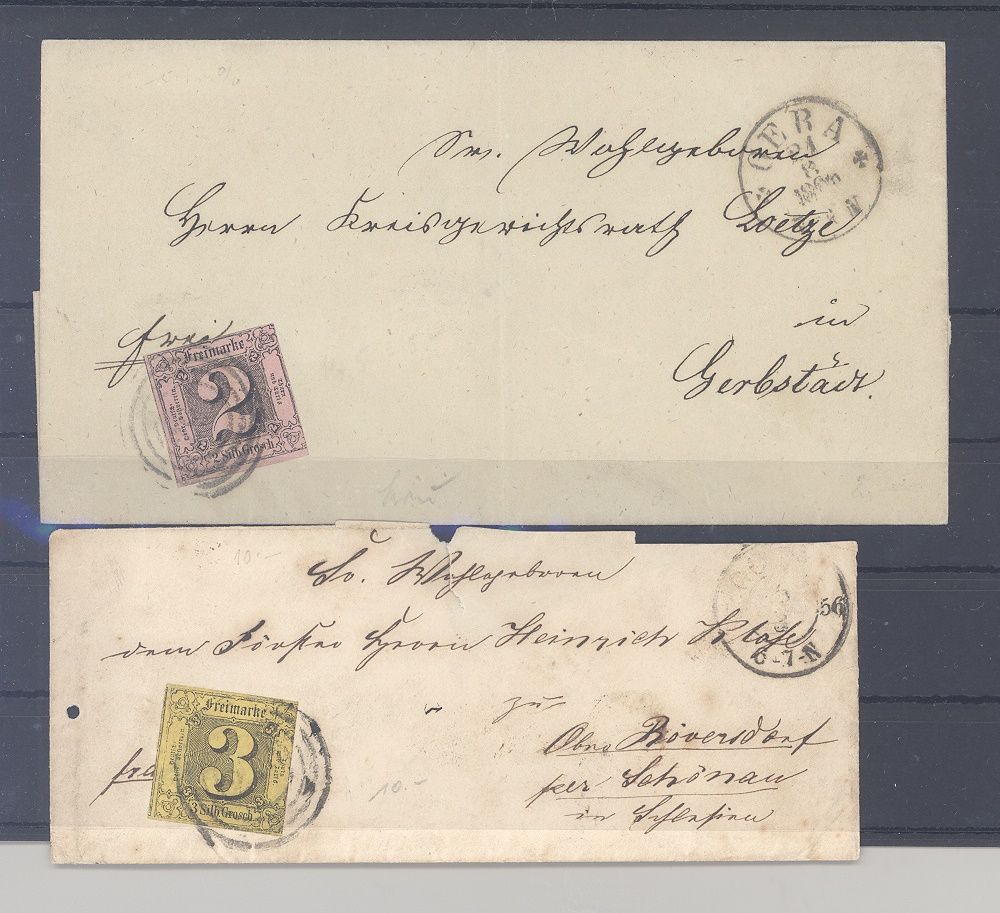 Sr. Wohlgeboren
Herrn Kreisgerichtsrath Loetze
in
Gerbstädt.
frei
GERA
24
8
N
Freimarke
2
2 Silb. Grosch
10.-
Sr. Wohlgeboren
dem Förster Herrn Heinrich Klose
zu
Ober Röversdorf
per Schönau
in Schlesien
fra
10.-
56
6-7-N
Freimarke
3
3 Silb. Grosch